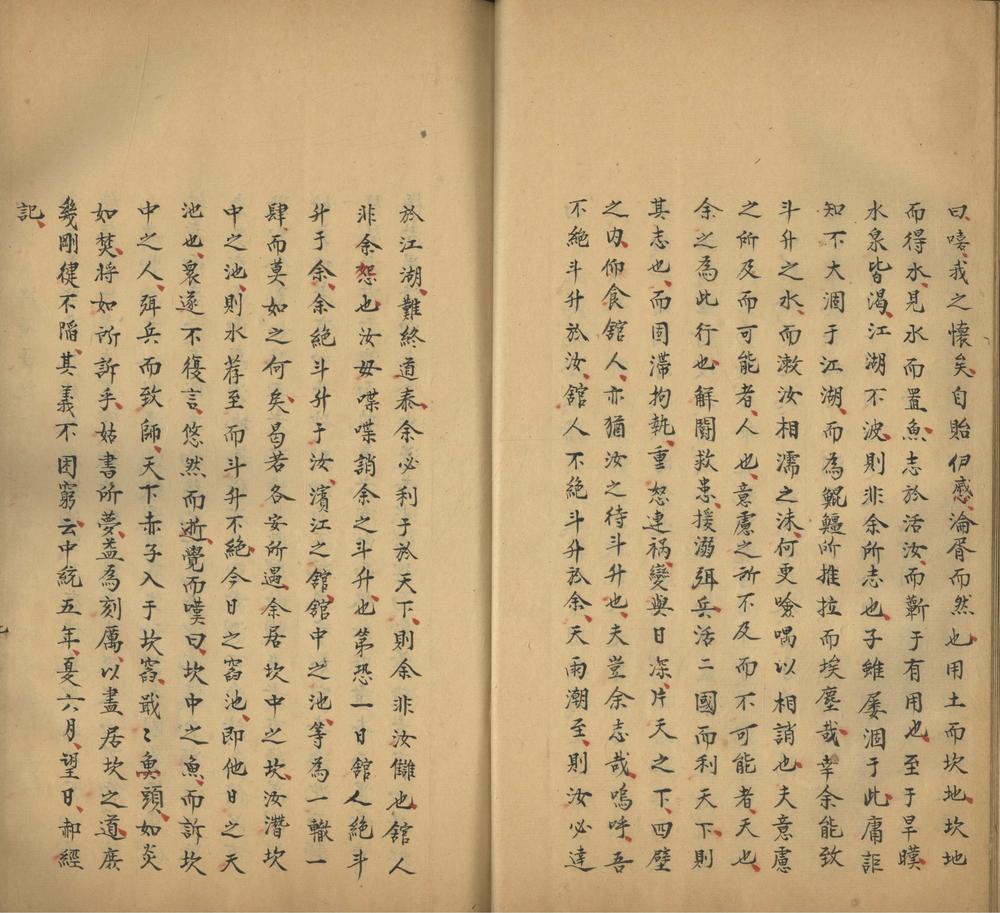 曰嘻我之懷矣自貽伊慼淪胥而然也用土而坎地坎地
而得水見水而置魚志於活汝而蘄于有用也至于旱暵
水泉皆渴江湖不波則非余所志也子雖屡涸于此庸詎
知不大涸于江湖而為鯤鱷所推拉而埃塵哉幸余能致
斗升之水而漱汝相濡之沫何更噞喁以相誚也夫意慮
之所及而可能者人也意慮之所不及而不可能者天也
余之為此行也解鬬救患援溺弭兵活二國而利天下則
其志也而固滯拘執重怒連禍變與日深片天之下四壁
之内仰食舘人亦猶汝之待斗升也夫豈余志哉嗚呼吾
不絶斗升於汝舘人不絶斗升於余天雨潮至則汝必達
於江湖難終道泰余必利于於天下則余非汝讎也舘人
非余怨也汝毋喋喋誚余之斗升也第恐一日舘人絶斗
升于余余絶斗升于汝濱江之舘舘中之池等為一轍一
肆而莫如之何矣曷若各安所遇余居坎中之坎汝潛坎
中之池則水荐至而斗升不絶今日之窞池即他日之天
池也衆遂不復言悠然而逝覺而嘆曰坎中之魚而訴坎
中之人弭兵而致師天下赤子入于坎窞戢〻魚頭如炎
如焚將如所訴乎姑書所夢葢為刻厲以盡居坎之道庶
幾剛健不陷其義不困窮云中統五年夏六月望日郝經
記